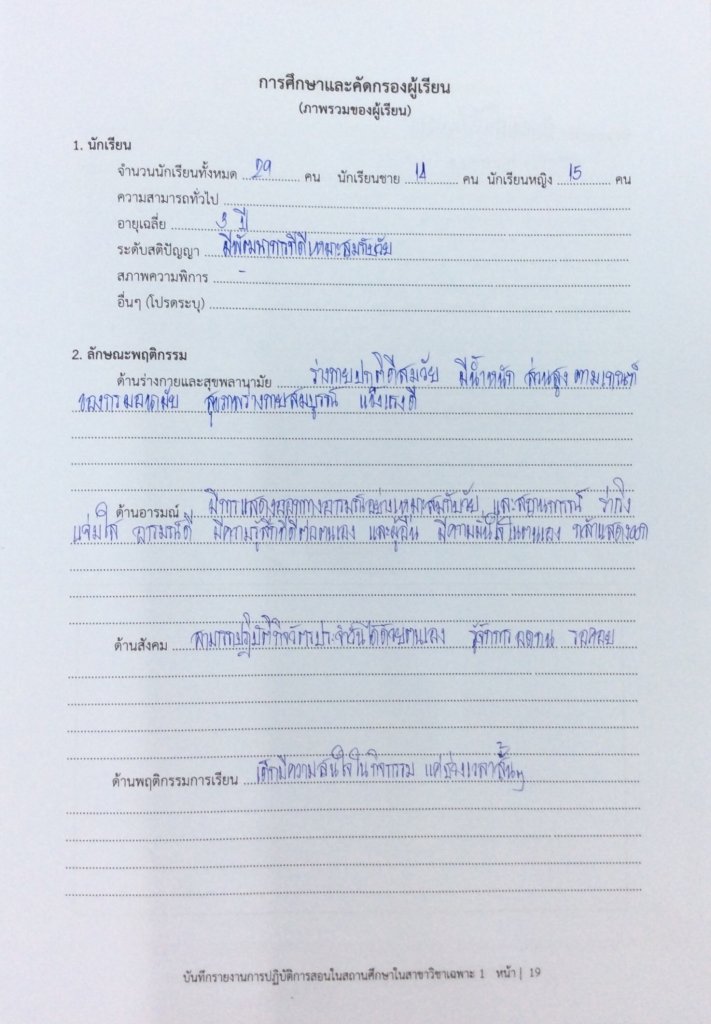 การศึกษาและคัดกรองผู้เรียน
(ภาพรวมของผู้เรียน)
1. นักเรียน
จำนวนนักเรียนทั้งหมด 29 คน นักเรียนชาย 14 คน นักเรียนหญิง 15 คน
ความสามารถทั่วไป
อายุเฉลี่ย 3 ปี
ระดับสติปัญญา มีพัฒนาการที่ดีเหมาะสมกับวัย
สภาพความพิการ -
อื่นๆ (โปรดระบุ)
2. ลักษณะพฤติกรรม
ด้านร่างกายและสุขพลานามัย ร่างกายปกติดีสมวัย มีน้ำหนัก ส่วนสูง ตามเกณฑ์
ของกรมอนามัย สุขภาพร่างกายสมบูรณ์ แข็งแรงดี
ด้านอารมณ์ มีการแสดงออกทางอารมณ์อย่างเหมาะสมกับวัย และสถานการณ์ ร่าเริง
แจ่มใส อารมณ์ดี มีความรู้สึกที่ดีต่อตนเอง และผู้อื่น มีความมั่นใจในตนเอง กล้าแสดงออก
ด้านสังคม สามารถปฏิบัติกิจวัตรประจำวันได้ด้วยตนเอง รู้จักการอดทน รอคอย
ด้านพฤติกรรมการเรียน เด็กมีความสนใจในกิจกรรม แค่ช่วงเวลาสั้นๆ
บันทึกรายงานการปฏิบัติการสอนในสถานศึกษาในสาขาวิชาเฉพาะ 1 หน้า | 19